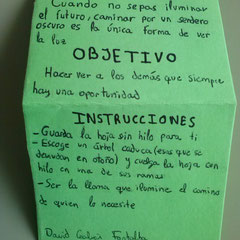 Cuando no sepas iluminar
el futuro, caminar por un sendero
oscuro es la única forma de ver
la luz
OBJETIVO
Hacer ver a los demás que siempre
hay una oportunidad
INSTRUCCIONES
- Guarda la hoja sin hilo para ti
- Escoge un árbol caduca (esos que se
desnudan en otoño) y cuelga la hoja con
hilo en una de sus ramas
- Ser la llama que ilumine el camino
de quien lo necesite
David